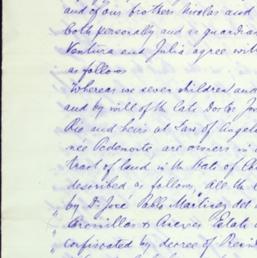 and of our brothers Nicolas and
both personally and as guardian
Ventura and Julia agree with
as follows
Whereas we seven children and
and by will of the late Doctor José
Rio and heirs at Law of Angela
née Redonate are owners in
tract of land in the State of Ch
described as follows, all the l
by Dr José Pablo Martinez del
Bronillos & Aneves Estate
confiscated by decree of Presid